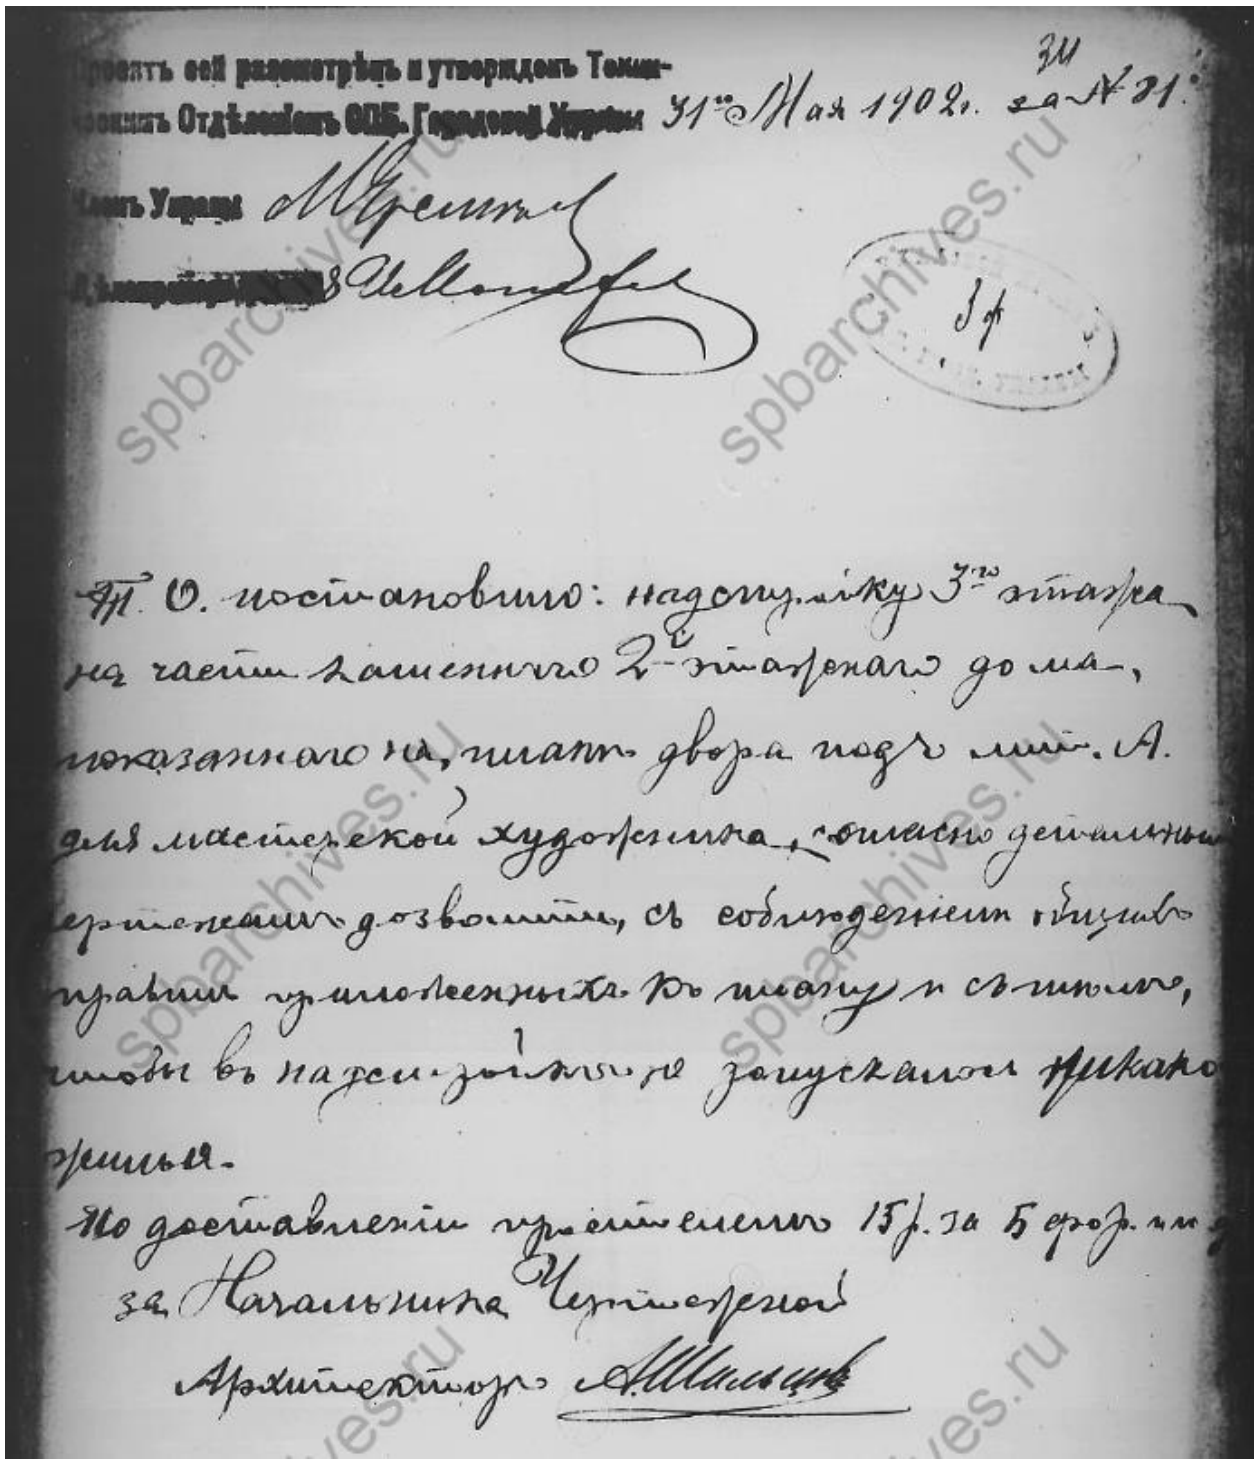 34
Проектъ сей разсмотрѣнъ и утвержденъ Техни-
ческимъ Отдѣленіемъ СПБ. Городской Управы 31го Мая 1902г. за №
Членъ Управы
3 ф
Т. О. постановило: надстройку 3го этажа
на части каменнаго 2й этажнаго дома,
показаннаго на планѣ двора подъ лит. А.
для мастерской художника, согласно детальнымъ
чертежамъ дозволить, съ соблюденіемъ общихъ
правилъ приложенныхъ къ плану и съ тѣмъ,
чтобы въ надстройкѣ не допускалось никако
жилья.
По доставленіи просителемъ 15 р. за 5
за Начальника Чертежной
Архитекторъ
spbarchives.ru
spbarchives.ru
spbarchives.ru
spbarchives.ru